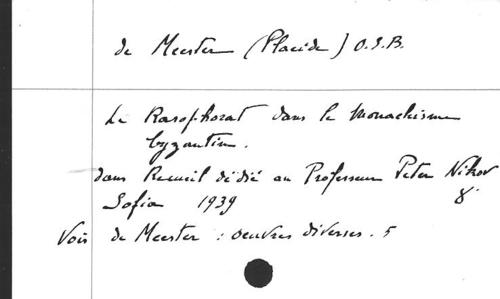 de Meester (Placide) O.S.B.
Le Rasophorat dans le monachisme
byzantin.
dans Recueil dédié au Professeur Peter Nikov
Sofia 1939
Voir de Meester : oeuvres diverses. 5